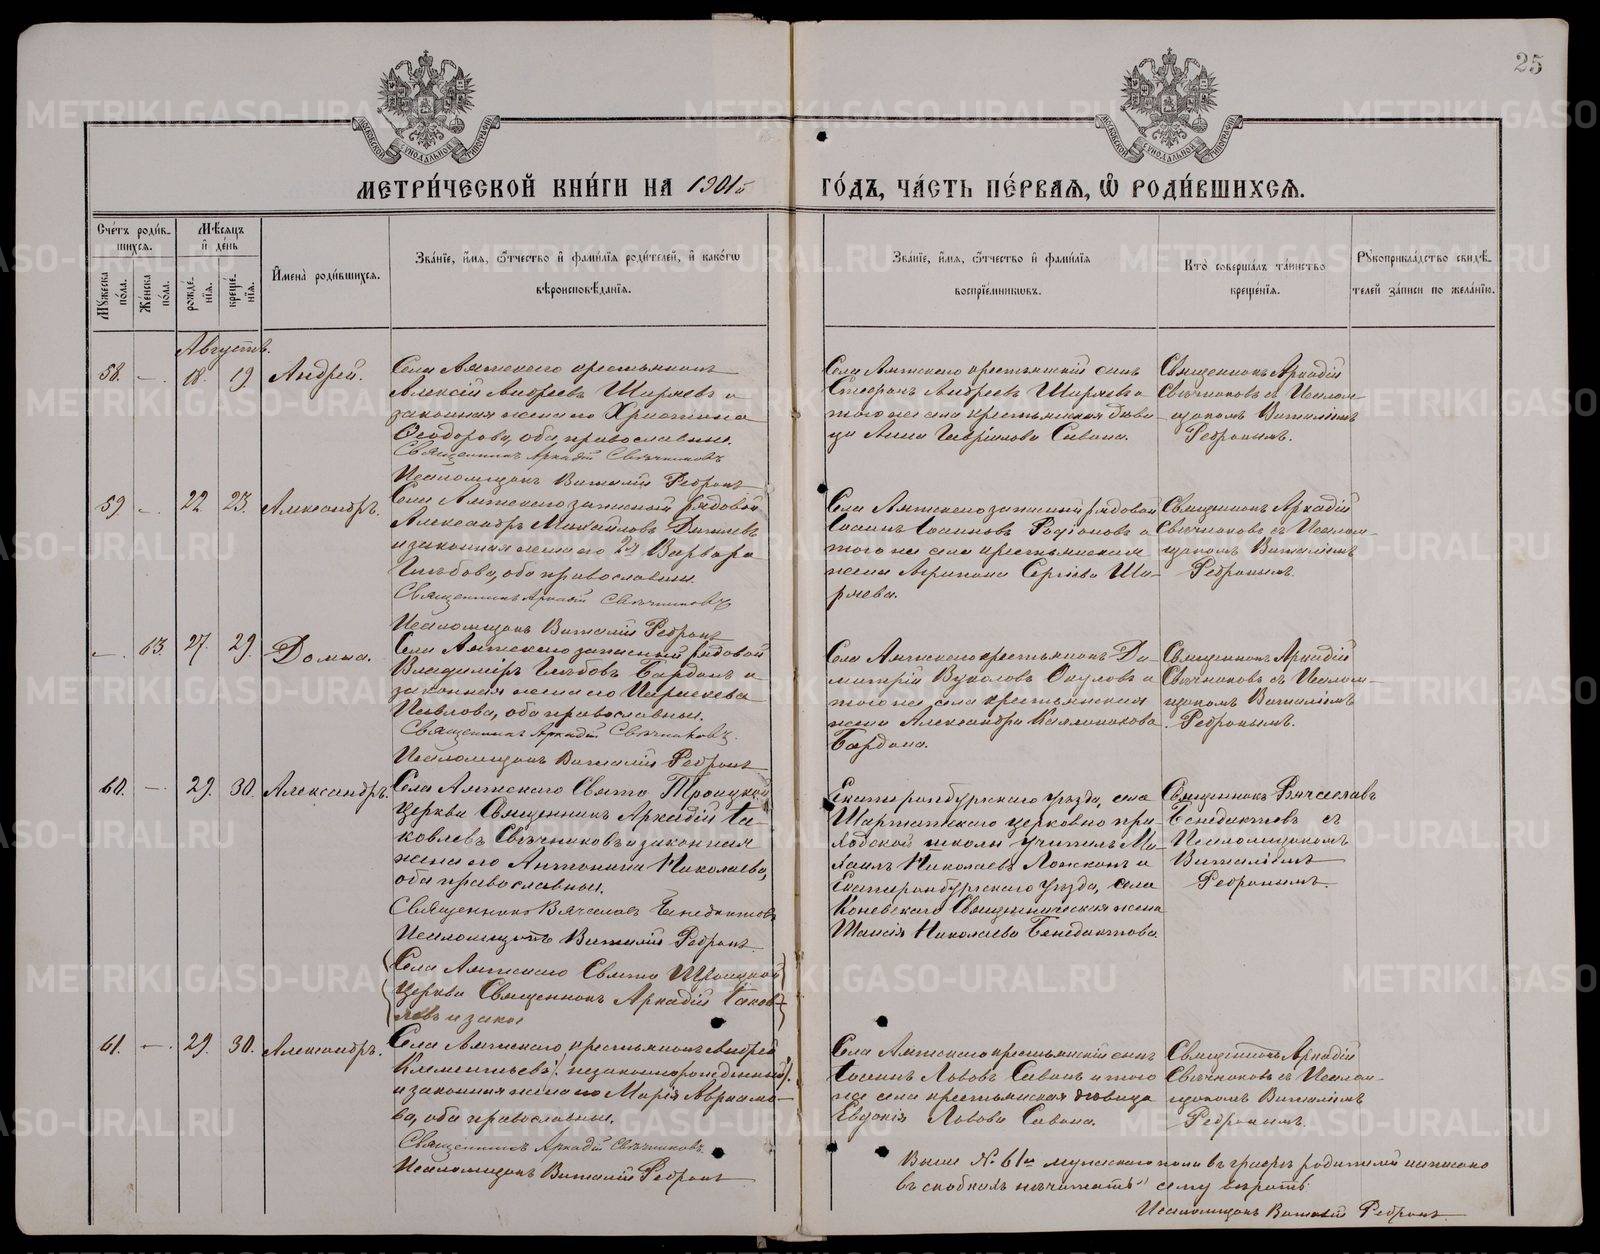 25
МЕТРИ́ЧЕСКОЙ КНИ́ГИ НА 1901й ГО́ДЪ, ЧА́СТЬ ПЕ́РВАѦ, Ѡ҆ РОДИ́ВШИХСѦ.
Сче́тъ роди́в-
шихсѧ.
Мꙋ́жеска
по́ла.
Же́нска
по́ла.
Мѣ́сѧцъ
и҆ де́нь
рожде́-
нїѧ.
креще́-
нїѧ.
И҆мена̀ роди́вшихсѧ.
Зва́нїе, и҆́мѧ, ѻ҆́тчество и҆ фами́лїѧ роди́телей, и҆ како́гѡ
вѣроисповѣ́данїѧ.
Зва́нїе, и҆́мѧ, ѻ҆́тчество и҆ фами́лїѧ
воспрїе́мникѡвъ.
Кто̀ соверша́лъ та́инство
креще́нїѧ.
Рꙋкоприкла́дство свидѣ́-
телей за́писи по жела́нїю.
Августъ.
58. —. 18. 19 Андрей.
Села Аятскаго крестьянинъ
Алексій Андреевъ Ширяевъ и
законная жена его Христина
Ѳеодорова, оба православные.
Священникъ Аркадій Свѣчниковъ
Псаломщикъ Виталій Ребринъ
Села Аятскаго крестьянскій сынъ
Стефанъ Андреевъ Ширяевъ и
того же села крестьянская дѣви-
ца Анна Гавріилова Савина.
Священникъ Аркадій
Свѣчниковъ съ Псалом-
щикомъ Виталіемъ
Ребринымъ.
59. —. 22 23. Александръ.
Села Аятскаго запасный рядовой
Александръ Михайловъ
и законная жена его Варвара
Глѣбова, оба православные.
Священникъ Аркадій Свѣчниковъ
Псаломщикъ Виталій Ребринъ
Села Аятскаго запасный рядовой
Іоаннъ Іоанновъ Родіоновъ и
того же села крестьянская
жена Агрипина Сергіева Ши-
ряева.
Священникъ Аркадій
Свѣчниковъ съ Псалом-
щикомъ Виталіемъ
Ребринымъ.
—. 13. 27. 29. Домна.
Села Аятскаго запасный рядовой
Владиміръ Глѣбовъ Бардинъ и
законная жена его Параскева
Павлова, оба православные.
Священникъ Аркадій Свѣчниковъ.
Псаломщикъ Виталій Ребринъ
Села Аятскаго крестьянинъ Ди-
митрій Вуколовъ Окуловъ и
того же села крестьянская
жена Александра Каллиникова
Бардина.
Священникъ Аркадій
Свѣчниковъ съ Псалом-
щикомъ Виталіемъ
Ребринымъ.
60. —. 29. 30. Александръ.
Села Аятскаго Свято Троицкой
Церкви Священникъ Аркадій Іа-
ковлевъ Свѣчниковъ и законная
жена его Антонина Николаева,
оба православные.
Священникъ Вячеславъ Бенедиктовъ
Псаломщикъ Виталій Ребринъ.
Екатеринбургскаго уѣзда, села
Шарташскаго церковно при-
ходской школы учитель Ми-
хаилъ Николаевъ и
Екатеринбургскаго уѣзда, села
Коневскаго Священническая жена
Таисія Николаева Бенедиктова.
Священникъ Вячеславъ
Бенедиктовъ съ
Псаломщикомъ
Виталіемъ
Ребринымъ.
(Села Аятскаго Свято Троицкой
Церкви Священникъ Аркадій Іаков-
левъ и закон)
61. —. 29. 30. Александръ.
Села Аятскаго крестьянинъ Андрей
Климентьевъ (незаконнорожденный)
и законная жена его Марія Авраамо-
ва, оба православные.
Священникъ Аркадій Свѣчниковъ.
Псаломщикъ Виталій Ребринъ
Села Аятскаго крестьянскій сынъ
Іоаннъ Львовъ Савинъ и того
же села крестьянская дѣвица
Евдокія Львова Савина.
Священникъ Аркадій
Свѣчниковъ съ Псалом-
щикомъ Виталіемъ
Ребринымъ.
Выше № 61го мужскаго пола въ графѣ родителей написано
въ скобкахъ нечитать сему вѣрить.
Псаломщикъ Виталій Ребринъ.
METRIKI.GASO-URAL.RU